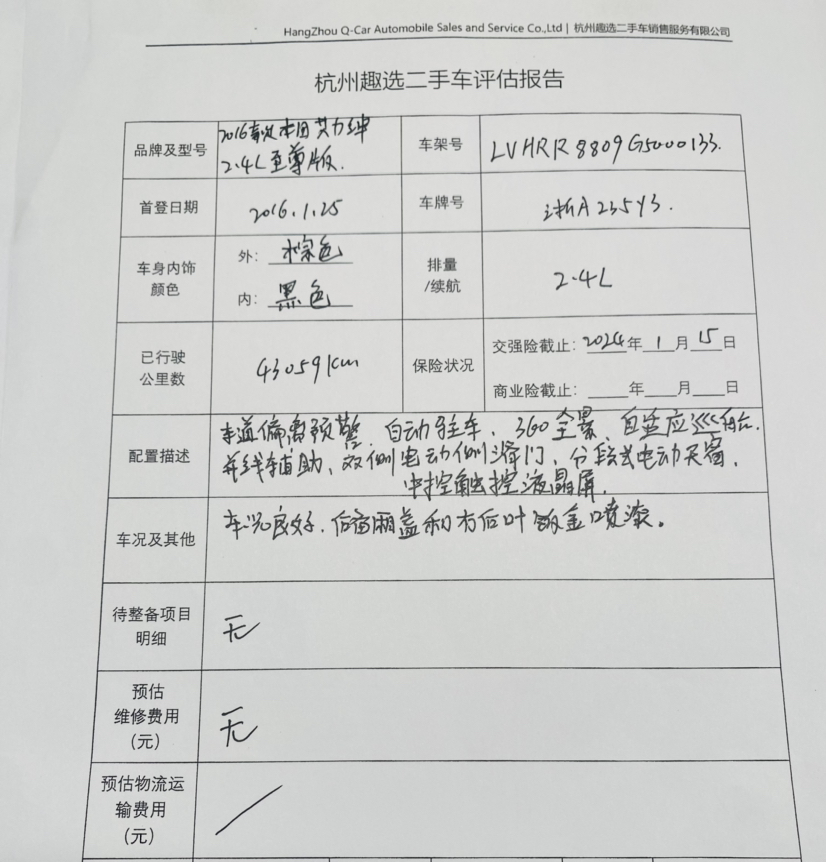 HangZhou Q-Car Automobile Sales and Service Co.,Ltd | 杭州趣选二手车销售服务有限公司
杭州趣选二手车评估报告
品牌及型号
2016款 本田艾力绅
2.4L至尊版.
车架号
LVHRR8809G5000133.
首登日期
2016.1.25
车牌号
浙A235Y3.
车身内饰
颜色
外: 棕色
内: 黑色
排量
/续航
2.4L
已行驶
公里数
43059km
保险状况
交强险截止: 2024年 1 月 15 日
商业险截止: ____年____月____日
配置描述
车道偏离预警、自动驻车、360全景、自适应巡航.
并线辅助、双侧电动侧滑门、分段式电动天窗、
中控触控液晶屏.
车况及其他
车况良好.后备厢盖和右后叶钣金喷漆。
待整备项目
明细
无
预估
维修费用
(元)
无
预估物流运
输费用
(元)